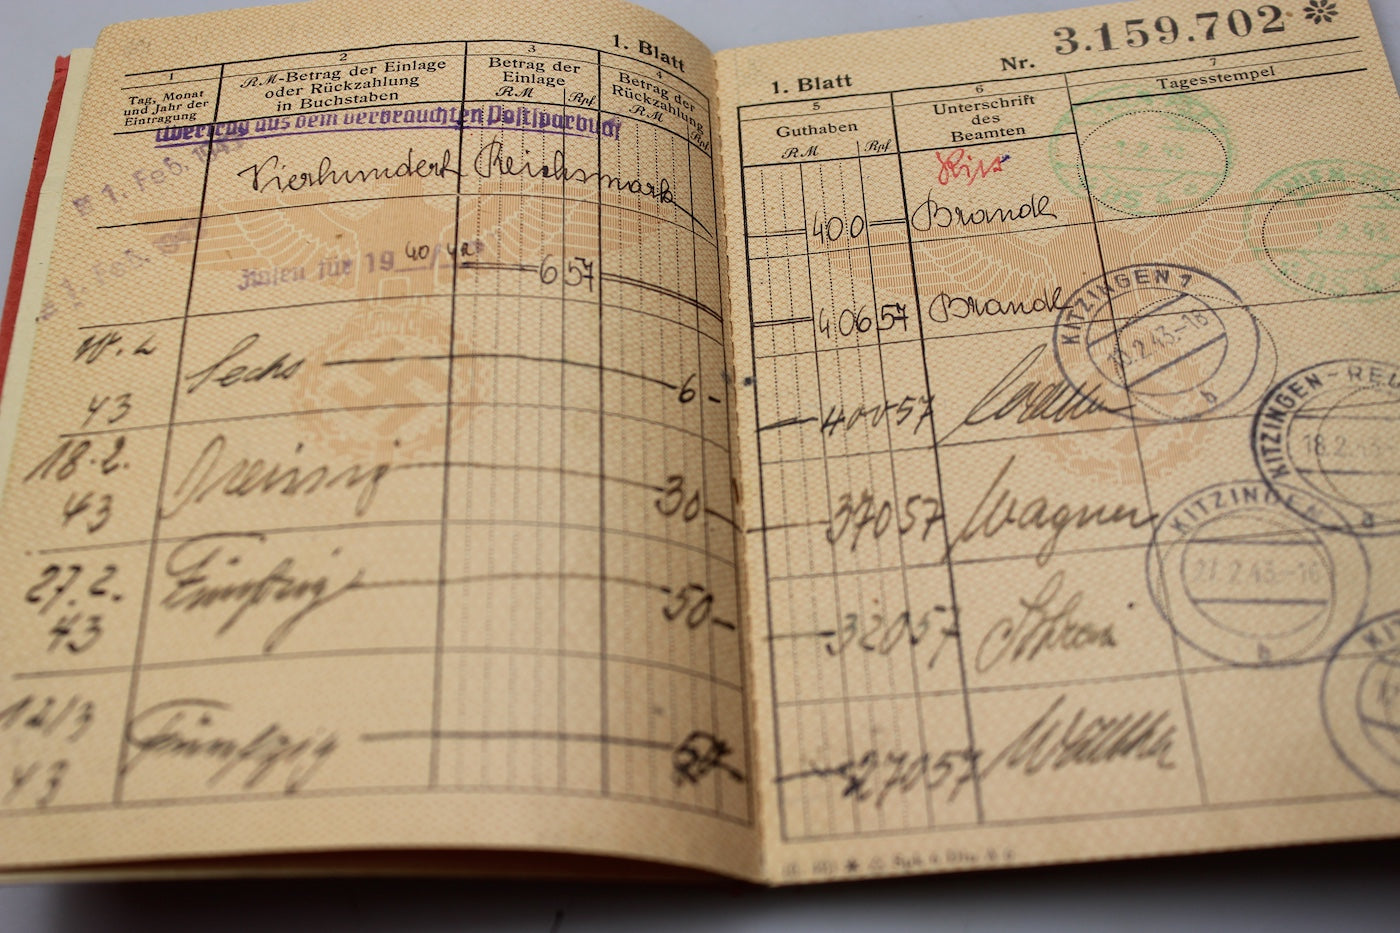 1. Blatt
1
Tag, Monat
und Jahr der
Eintragung
2
RM-Betrag der Einlage
oder Rückzahlung
in Buchstaben
3
Betrag der
Einlage
RM Rpf
4
Betrag der
Rückzahlung
RM Rpf
Übertrag aus dem verbrauchten Postsparbuch
1. Feb.
Vierhundert Reichsmark
1. Feb.
für 1940/42 6 57
2
43
Sechs 6 -
18.2.
43
Dreissig 30 -
27.2.
43
Fünfzig 50 -
12/3
43
Fünfzig
3.159.702
Nr.
1. Blatt
5
Guthaben
RM Rpf
6
Unterschrift
des
Beamten
7
Tagesstempel
400 Brandl
406 57 Brandl
KITZINGEN 1
2.43.-18
b
400 57
KITZINGEN-RE
18.2.43
370 57 Wagner
KITZINGEN
27.2.43-16
b
320 57
270 57